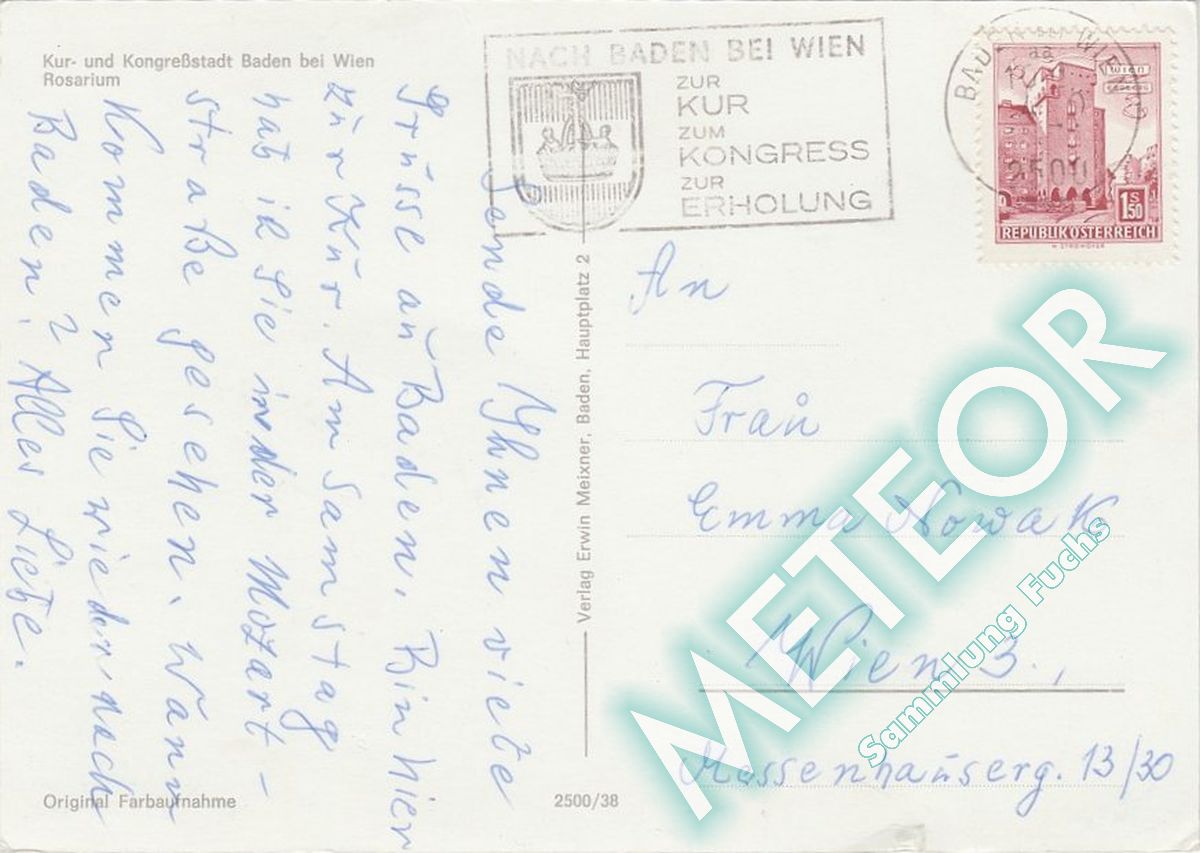 Kur- und Kongreßstadt Baden bei Wien
Rosarium
NACH BADEN BEI WIEN
ZUR
KUR
ZUM
KONGRESS
ZUR
ERHOLUNG
WIEN
2500
1 S 50
REPUBLIK ÖSTERREICH
Sende Ihnen viele
Grüsse aus Baden. Bin hier
zur Kur. Am Samstag
hab ich Sie in der Mozart-
straße gesehen. Wann
Kommen Sie wieder nach
Baden? Alles Liebe.
Verlag Erwin Meixner, Baden, Hauptplatz 2
An
Frau
Emma Nowak
Wien 3.,
Messenhauserg. 13/30
Original Farbaufnahme
2500/38
METEOR
Sammlung Fuchs